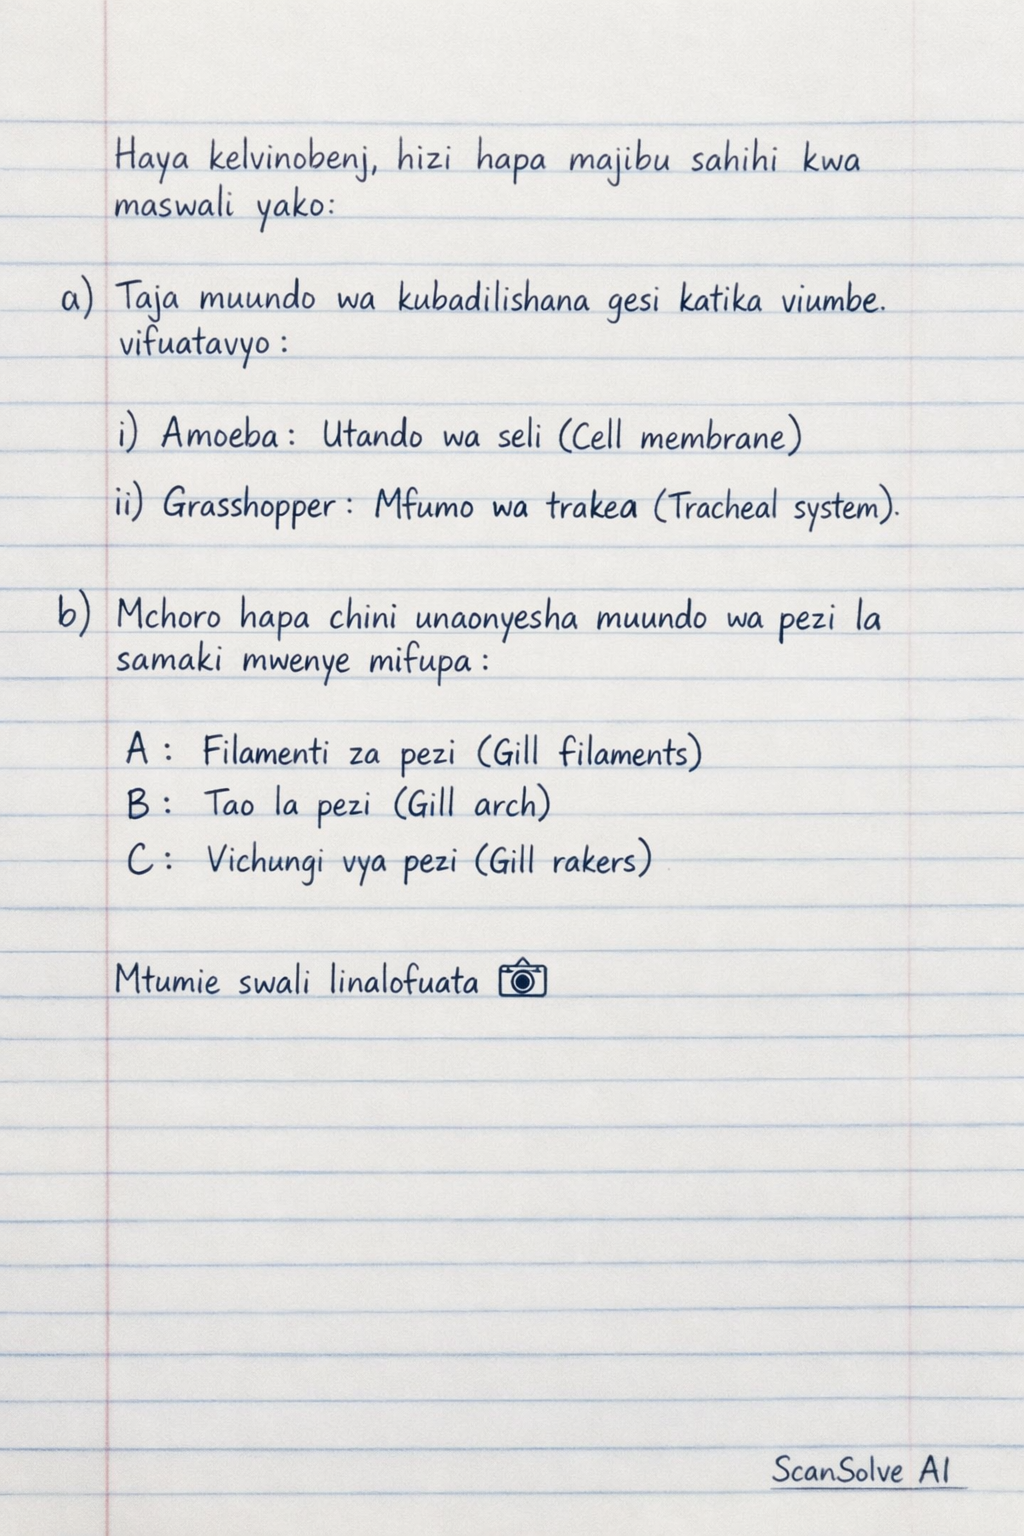 Haya kelvinobenj, hizi hapa majibu sahihi kwa
maswali yako:
a) Taja muundo wa kubadilishana gesi katika viumbe.
vifuatavyo:
i) Amoeba: Utando wa seli (Cell membrane)
ii) Grasshopper: Mfumo wa trakea (Tracheal system).
b) Mchoro hapa chini unaonyesha muundo wa pezi la
samaki mwenye mifupa:
A: Filamenti za pezi (Gill filaments)
B: Tao la pezi (Gill arch)
C: Vichungi vya pezi (Gill rakers)
Mtumie swali linalofuata
ScanSolve AI